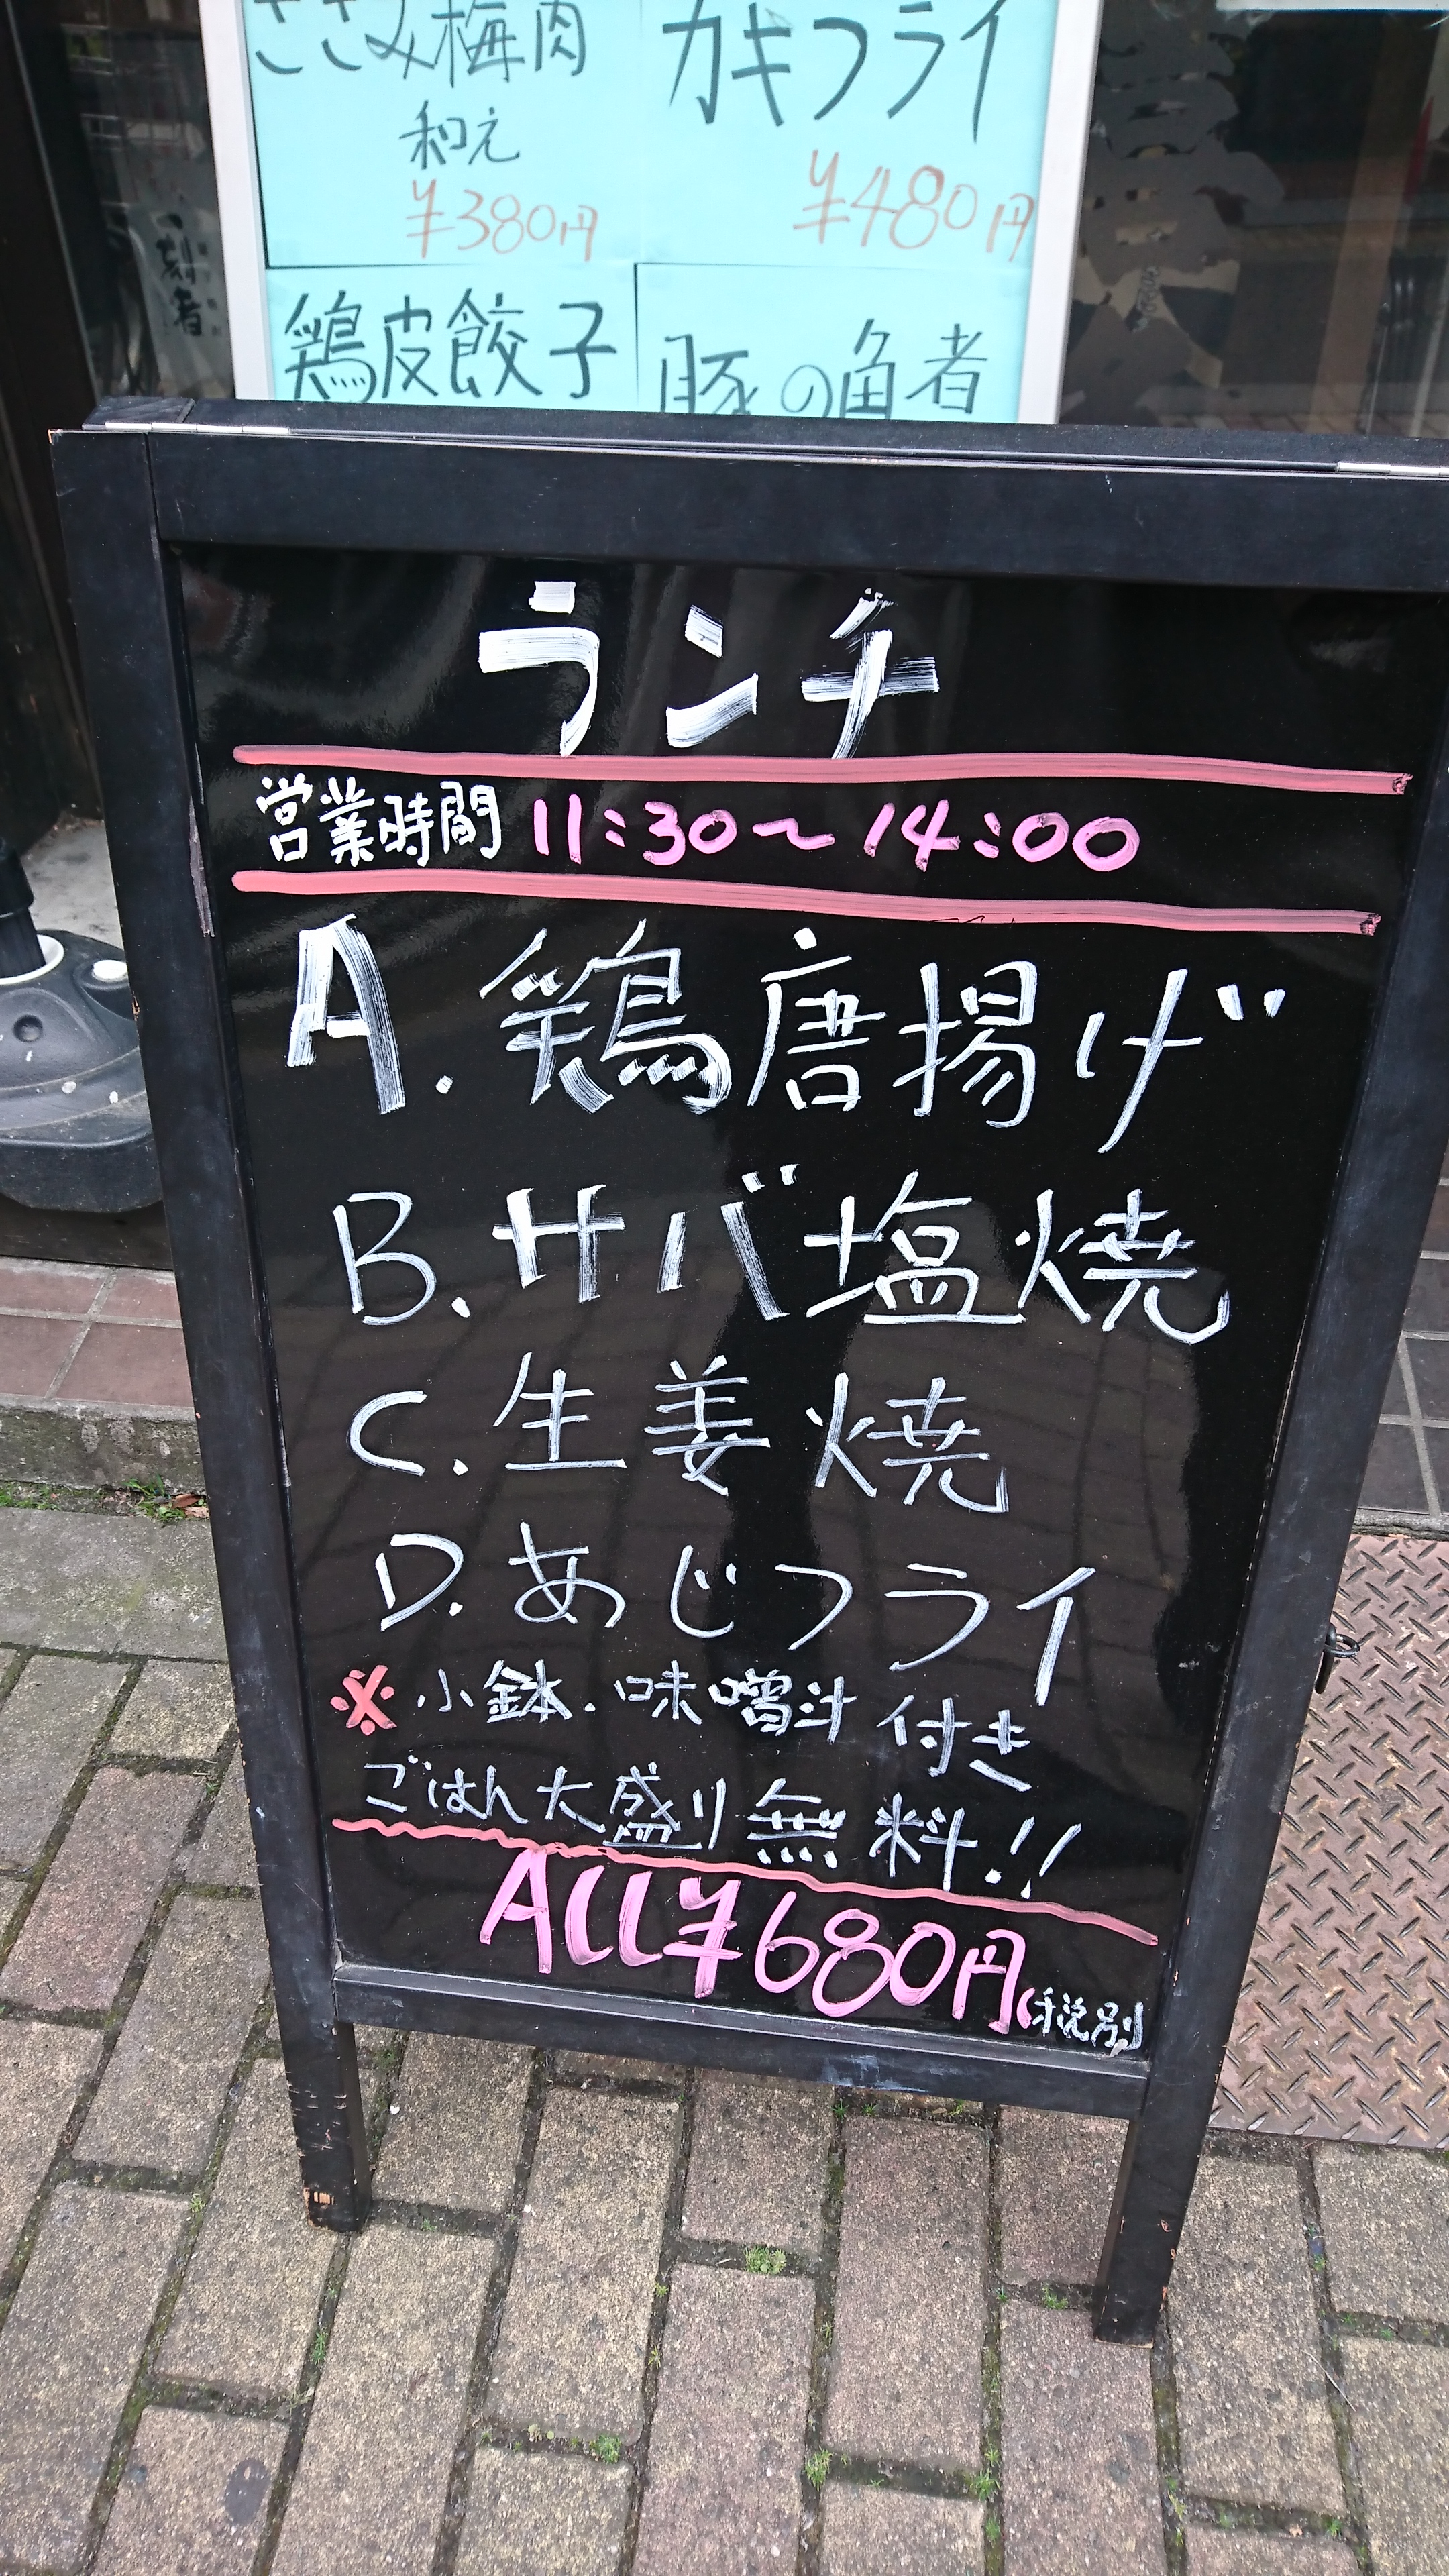 ささみ梅肉
和え
¥380円
カキフライ
¥480円
鶏皮餃子
豚の角煮
ランチ
営業時間 11:30〜14:00
A.鶏唐揚げ
B.サバ塩焼
C.生姜焼
D.あじフライ
※小鉢.味噌汁付き
ごはん大盛り無料!!
ALL¥680円(税別)